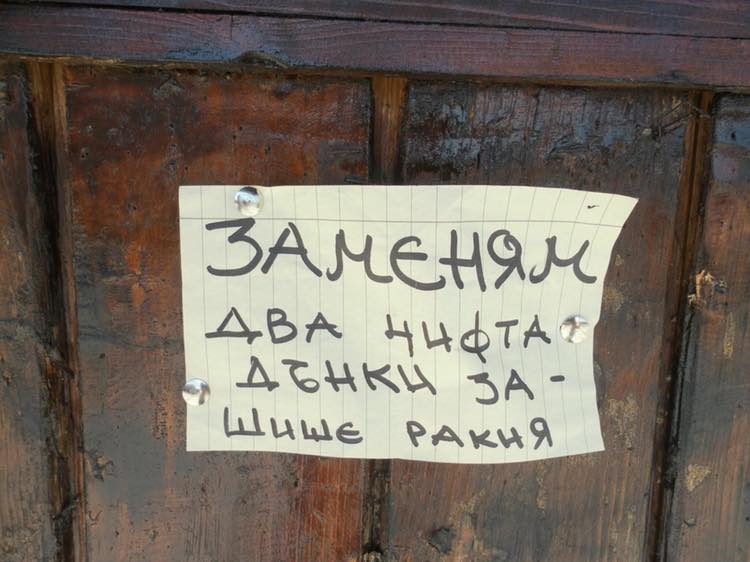 ЗАМЕНЯМ
ДВА ЧИФТА
ДЪНКИ ЗА-
ШИШЕ РАКИЯ